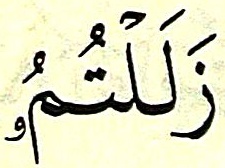 زَلَلْتُمُۥ